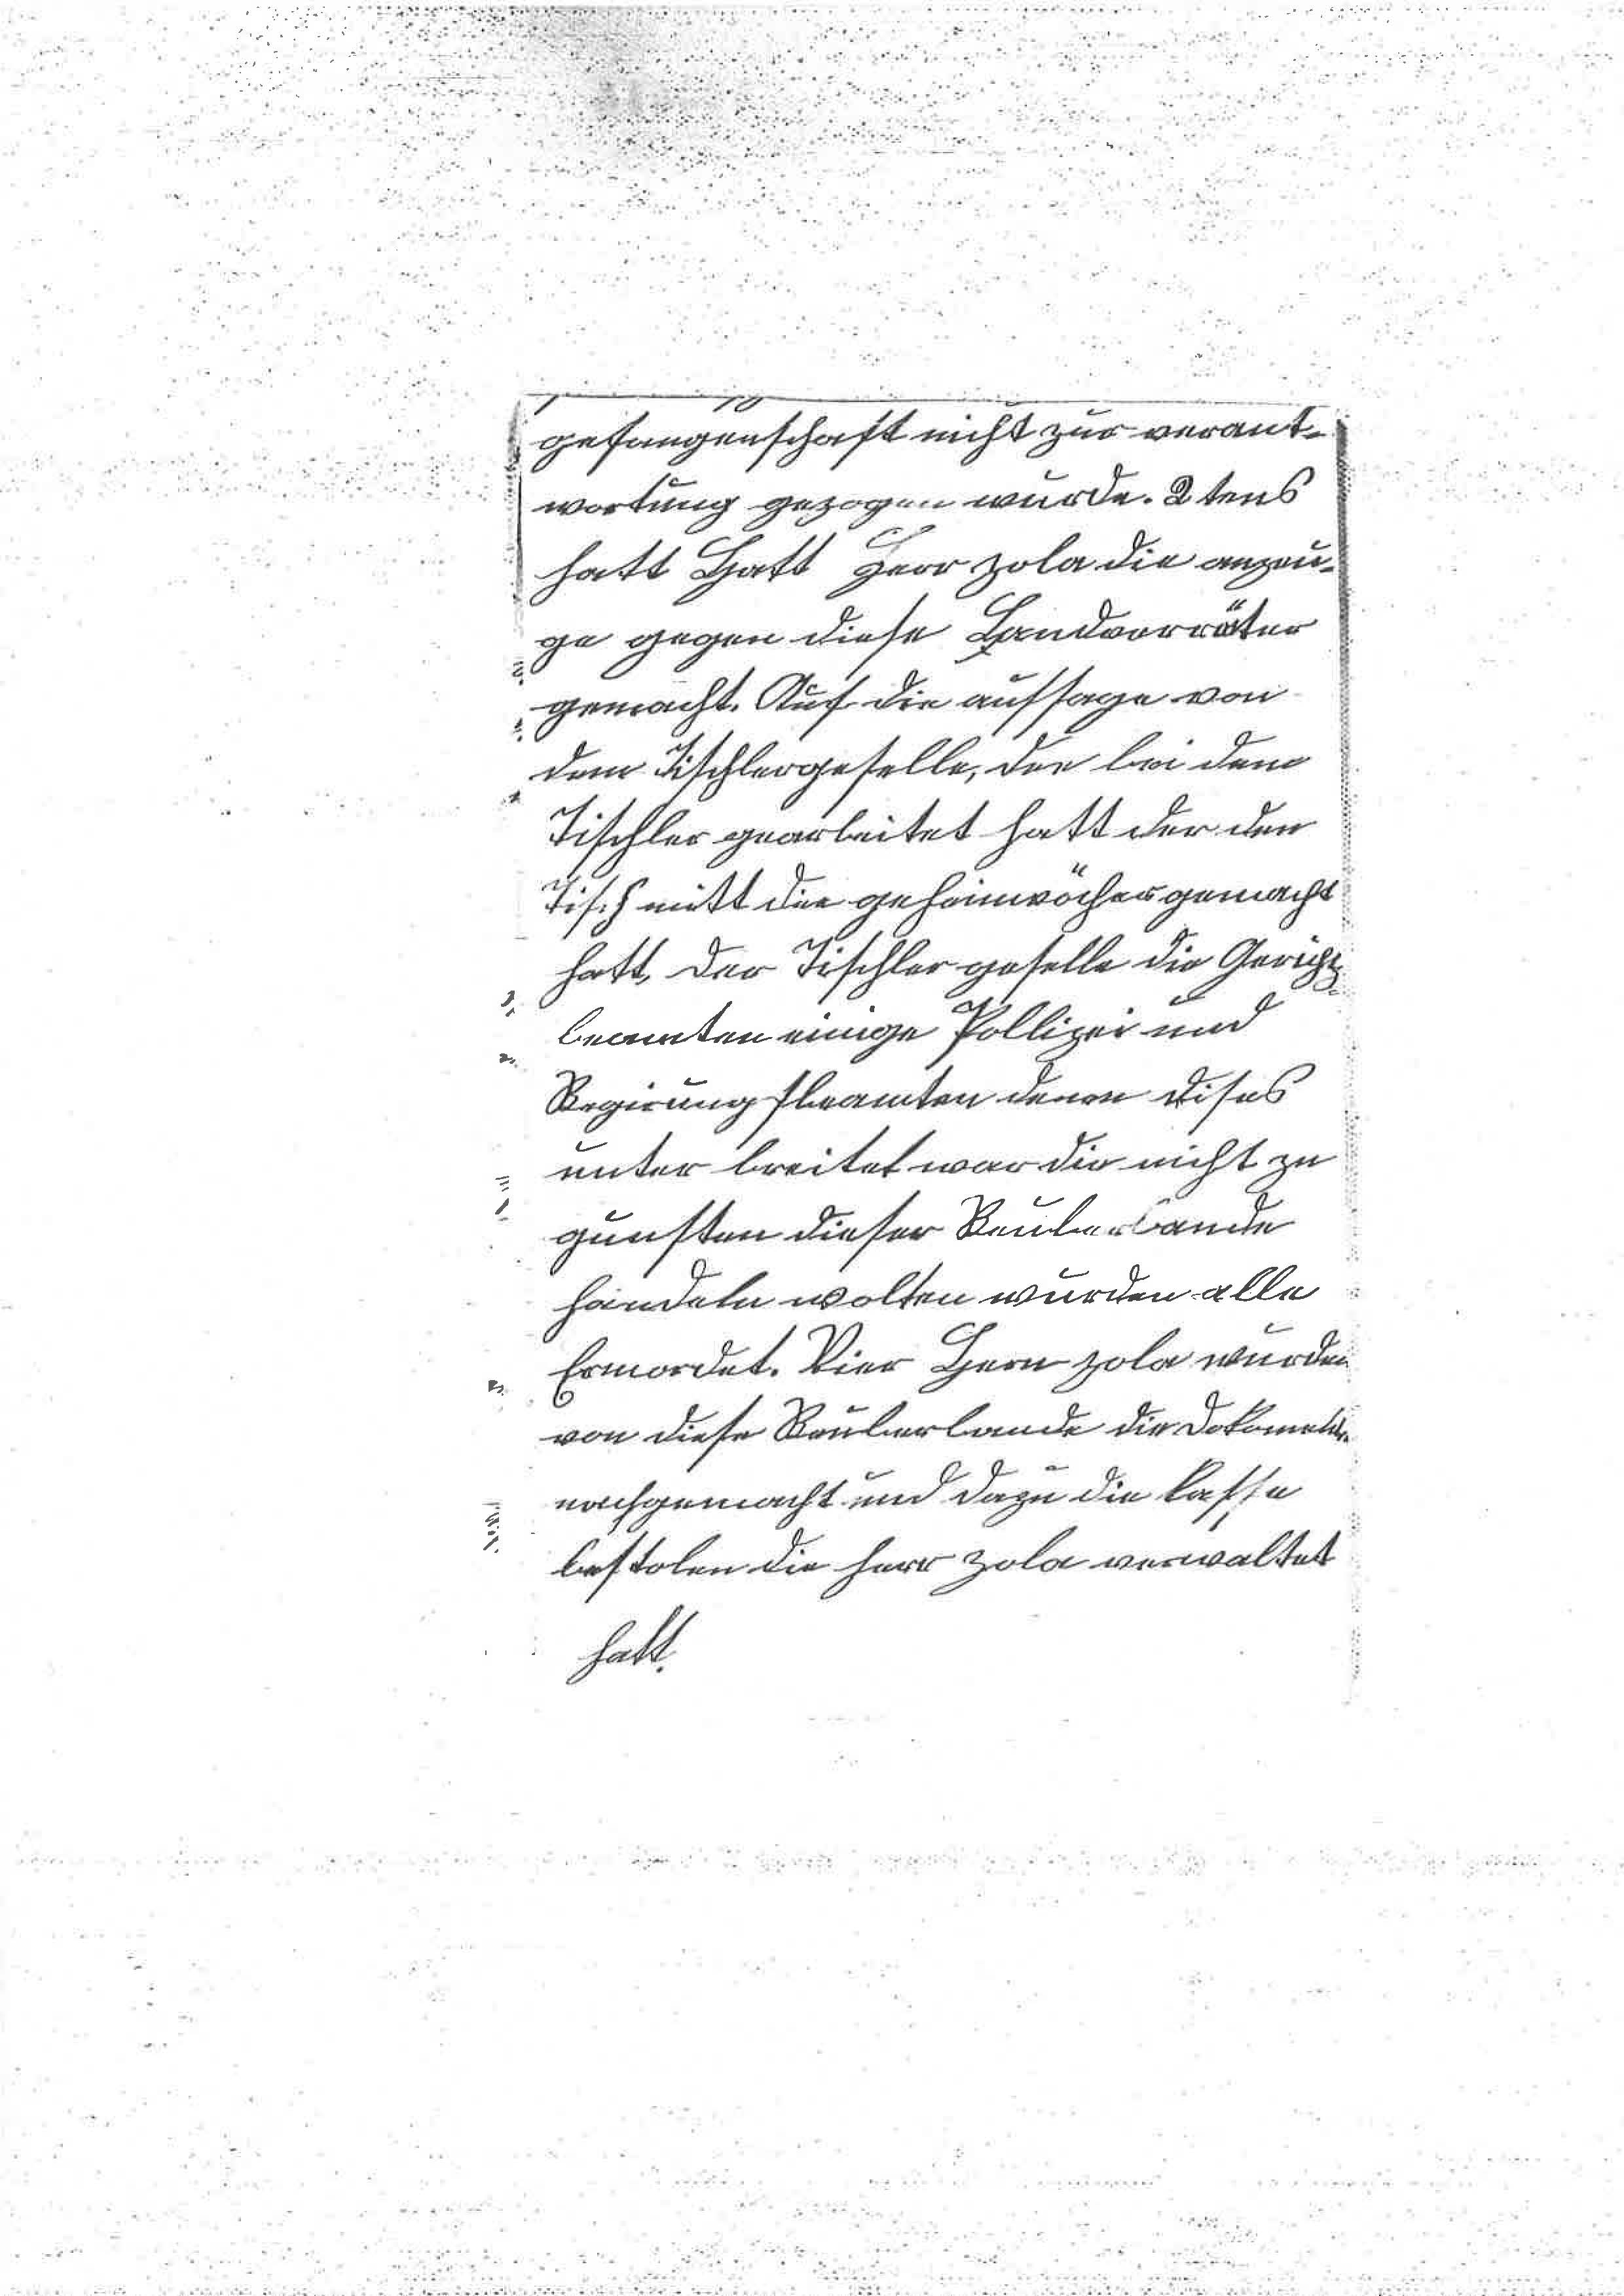 gefangenschaft nicht zur verant-
wortung gezogen wurde. 2 tens
hatt Hatt Herr Zola die anzeu-
ge gegen diese Landvorräter
gemacht. Auf die aussage von
dem Tischlergeselle, der bei dem
Tischler gearbeitet hatt der den
Tisch mitt die geheimvächer gemacht
hatt, der Tischler geselle die Gerichtz-
beamten einige Pollizei und
Regirungsbeamten denen dises
unter breitet war die nicht zu
gunsten dieser Reuberbande
handeln wolten wurden alle
Ermordet. Vier Hern Zola wurden
von diese Reuberbande die Dokomente
nachgemacht und dazu die kasse
bestolen die herr Zola verwaltet
hatt.